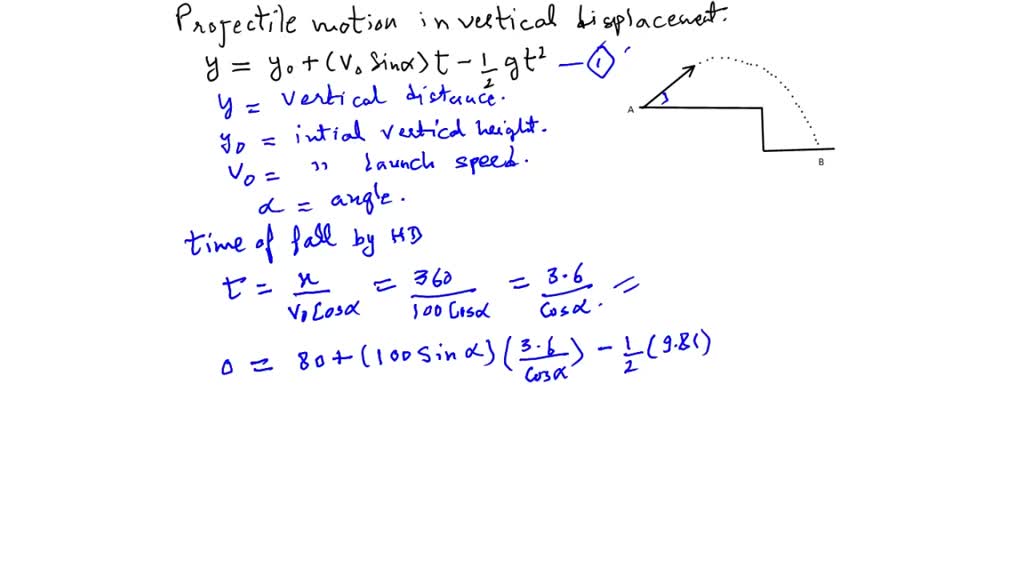 Projectile motion in vertical displacement.
y = y₀ + (V₀ Sinα) t - 1/2 gt² — ①
y = vertical distance.
y₀ = intial vertical height.
V₀ = " launch speed.
α = angle.
A
B
time of fall by HD
t = x/V₀ Cosα = 360/100 Cosα = 3.6/Cosα. =
0 = 80 + (100 Sin α) (3.6/Cosα) - 1/2 (9.81)